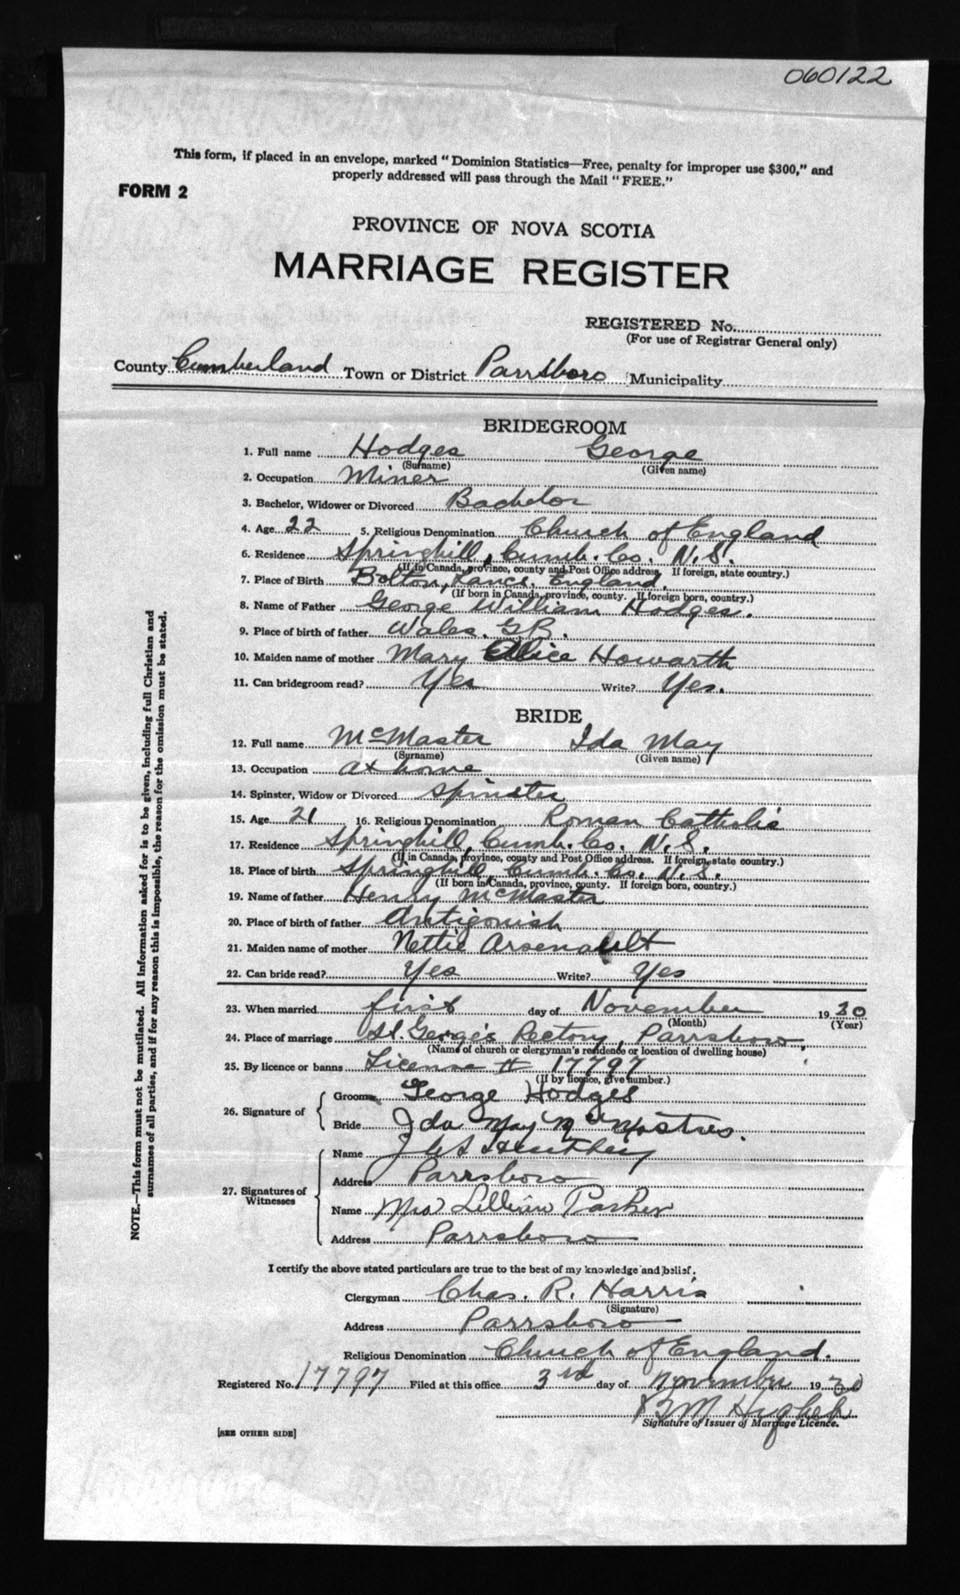 060122
This form, if placed in an envelope, marked "Dominion Statistics—Free, penalty for improper use $300," and
properly addressed will pass through the Mail "FREE."
FORM 2
PROVINCE OF NOVA SCOTIA
MARRIAGE REGISTER
REGISTERED No.
(For use of Registrar General only)
County Cumberland Town or District Parrsboro Municipality
BRIDEGROOM
1. Full name Hodges George
(Surname) (Given name)
2. Occupation Miner
3. Bachelor, Widower or Divorced Bachelor
4. Age 22 5. Religious Denomination Church of England
6. Residence Springhill, Cumb. Co. N.S.
(If in Canada, province, county and Post Office address. If foreign, state country.)
7. Place of Birth Bolton, Lancs. England,
(If born in Canada, province, county. If foreign born, country.)
8. Name of Father George William Hodges.
9. Place of birth of father Wales. G.B.
10. Maiden name of mother Mary Alice Howarth
11. Can bridegroom read? Yes Write? Yes.
BRIDE
12. Full name McMaster Ida May
(Surname) (Given name)
13. Occupation at home
14. Spinster, Widow or Divorced Spinster
15. Age 21 16. Religious Denomination Roman Catholic
17. Residence Springhill, Cumb. Co. N.S.
(If in Canada, province, county and Post Office address. If foreign, state country.)
18. Place of birth Springhill, Cumb. Co. N.S.
(If born in Canada, province, county. If foreign born, country.)
19. Name of father Henry McMaster
20. Place of birth of father Antigonish
21. Maiden name of mother Nettie Arsenault
22. Can bride read? Yes Write? Yes
23. When married first day of November 1930
(Month) (Year)
24. Place of marriage St. George's Rectory, Parrsboro,
(Name of church or clergyman's residence or location of dwelling house)
25. By licence or banns License # 17797
(If by licence, give number.)
26. Signature of
Groom George Hodges
Bride Ida May
27. Signatures of Witnesses
Name
Address Parrsboro
Name Mrs Lillian Parker
Address Parrsboro
I certify the above stated particulars are true to the best of my knowledge and belief.
Clergyman Chas. R. Harris
(Signature)
Address Parrsboro
Religious Denomination Church of England.
Registered No. 17797 Filed at this office 3rd day of November 1930
Signature of Issuer of Marriage Licence.
[SEE OTHER SIDE]
NOTE.—This form must not be mutilated. All information asked for is to be given, including full Christian and
surnames of all parties, and if for any reason this is impossible, the reason for the omission must be stated.